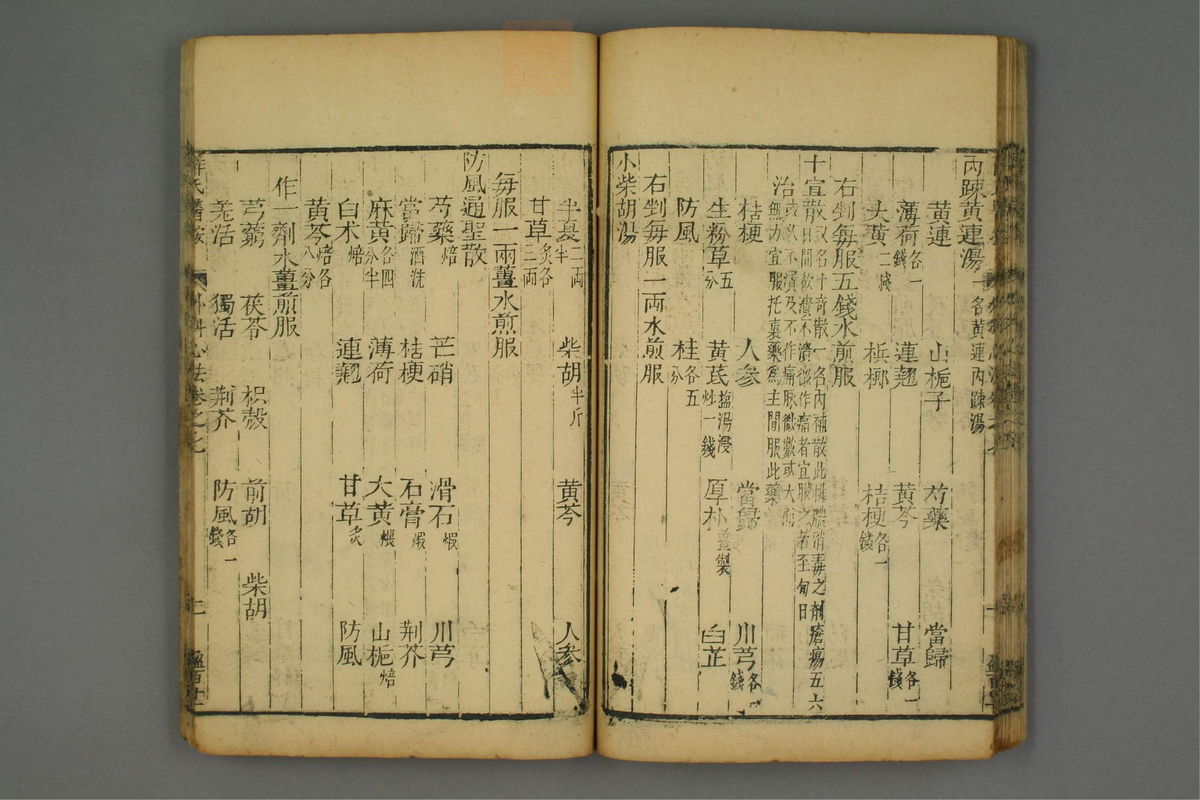 內踈黃連湯一名黃連內踈湯
黃連 山梔子 芍藥 當歸
薄荷各一錢 連翹 黃芩 甘草各一錢
大黃二錢 梹榔 桔梗各一錢
右剉每服五錢水煎服
十宣散又名十奇散一名內補散此排膿消毒之劑瘡瘍五六
日間欲潰不潰微作痛者宜服之若至旬日
治或以不潰及不作痛脉微數或大而
無力宜服托裏藥為主間服此藥
桔梗 人參 當歸 川芎各一錢
生粉草五分 黃芪塩湯浸炒一錢 厚朴薑製 白芷
防風 桂各五分
右剉每服一兩水煎服
小柴胡湯
半夏二兩半 柴胡半斤 黃芩 人參
甘草炙各三兩
每服一兩薑水煎服
防風通聖散
芍藥焙 芒硝 滑石煆 川芎
當歸酒洗 桔梗 石膏煆 荆芥
麻黃各四分半 薄荷 大黃煨 山梔焙
白朮焙 連翹 甘草炙 防風
黃芩焙各八分
作一劑水薑煎服
芎藭 茯苓 枳殼 前胡 柴胡
羌活 獨活 荆芥 防風各一錢
薛氏醫按 外科心法卷之七